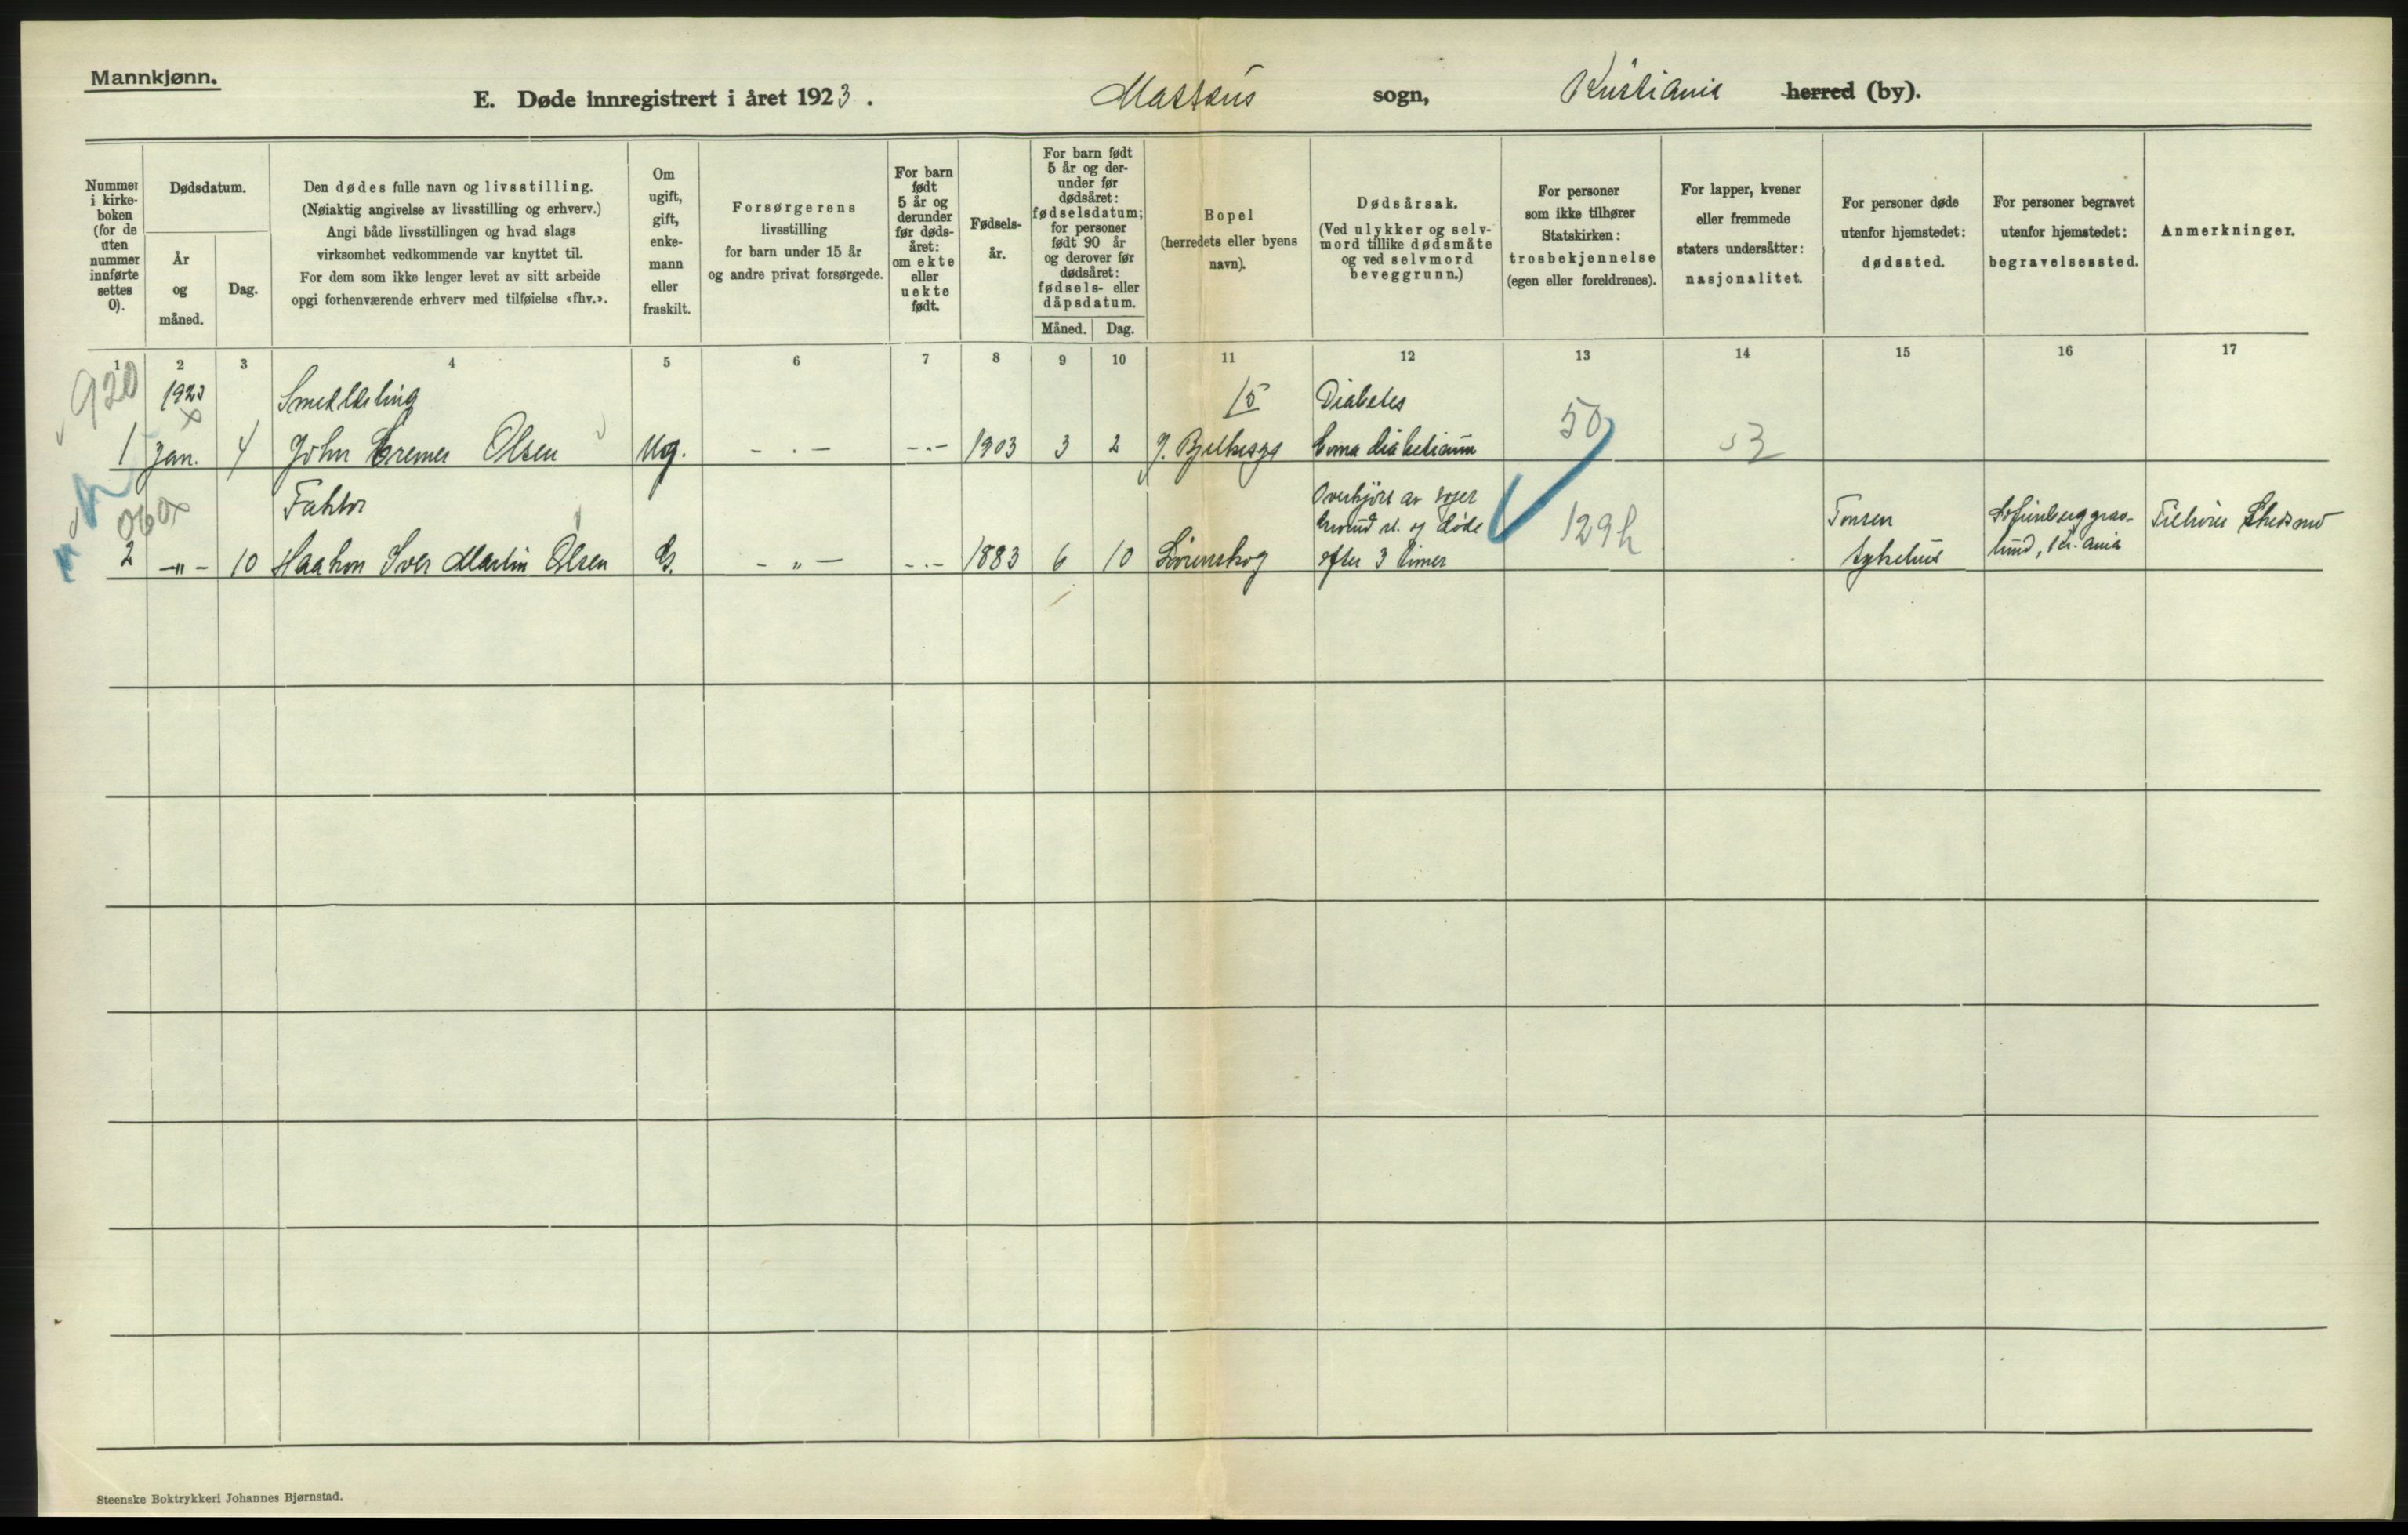 Mannkjønn.
E. Døde innregistrert i året 1923. Mattæus sogn, Kristiania herred (by).
Nummer i kirkeboken (for de uten nummer innførte settes 0).
Dødsdatum.
År og måned.
Dag.
Den dødes fulle navn og livsstilling.
(Nøiaktig angivelse av livsstilling og erhverv.)
Angi både livsstillingen og hvad slags
virksomhet vedkommende var knyttet til.
For dem som ikke lenger levet av sitt arbeide
opgi forhenværende erhverv med tilføielse «fhv.».
Om ugift, gift, enkemann eller fraskilt.
Forsørgerens
livsstilling
for barn under 15 år
og andre privat forsørgede.
For barn født 5 år og derunder før dødsåret: om ekte eller uekte født.
Fødselsår.
For barn født 5 år og derunder før dødsåret: fødselsdatum; for personer født 90 år og derover før dødsåret: fødsels- eller dåpsdatum.
Måned.
Dag.
Bopel
(herredets eller byens
navn).
Dødsårsak.
(Ved ulykker og selvmord tillike dødsmåte og ved selvmord beveggrunn.)
For personer
som ikke tilhører
Statskirken:
trosbekjennelse
(egen eller foreldrenes).
For lapper, kvener
eller fremmede
staters undersåtter:
nasjonalitet.
For personer døde
utenfor hjemstedet:
dødssted.
For personer begravet
utenfor hjemstedet:
begravelsessted.
Anmerkninger.
1 2 3 4 5 6 7 8 9 10 11 12 13 14 15 16 17
920 1923 Smedlærling 15 Diabetes 50
1 Jan. 4 John Cremer Olsen Ug. - . - - . - 1903 3 2 J. Bjelkesgt Coma diabeticum
060x Faktor Overkjørt av
og døde 129h Tonsen Sofienberg grav-
2 -"- 10 Haakon Iver Martin Olsen G. - " - - . - 1883 6 10 Lørenskog efter 3 timer sykehus lund, Kr.ania Tilhører Skedsmo
Steenske Boktrykkeri Johannes Bjørnstad.